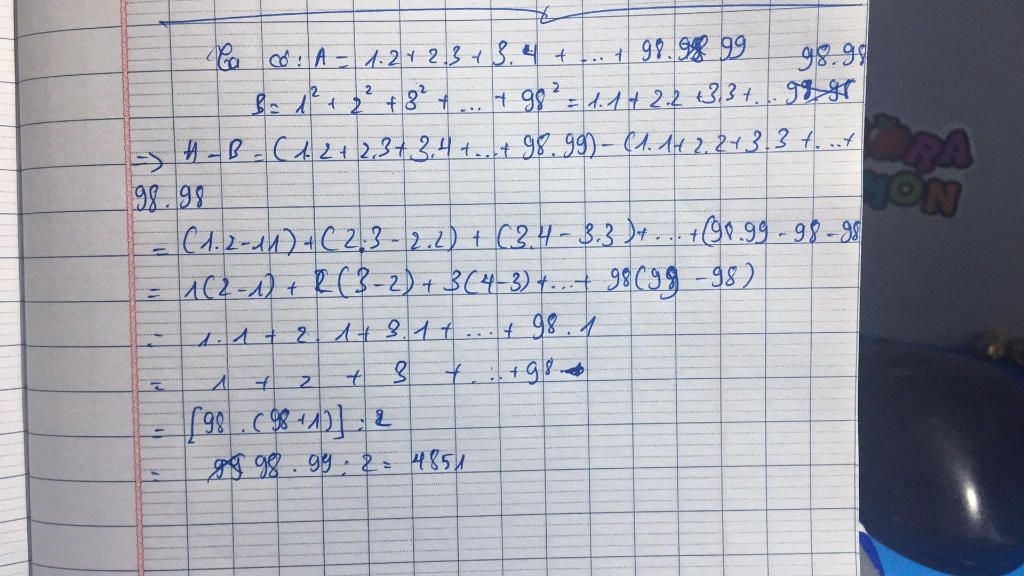 Ta có: A = 1.2 + 2.3 + 3.4 + ... + 98.99
98.98
B = 1² + 2² + 3² + ... + 98² = 1.1 + 2.2 + 3.3 + ...
=> A - B = (1.2 + 2.3 + 3.4 + ... + 98.99) - (1.1 + 2.2 + 3.3 + ... +
98.98
= (1.2 - 1.1) + (2.3 - 2.2) + (3.4 - 3.3) + ... + (98.99 - 98 - 98
= 1(2 - 1) + 2(3 - 2) + 3(4 - 3) + ... + 98(99 - 98)
= 1.1 + 2.1 + 3.1 + ... + 98.1
= 1 + 2 + 3 + ... + 98
= [98.(98+1)] : 2
= 98.99 : 2 = 4851
ORA
MON